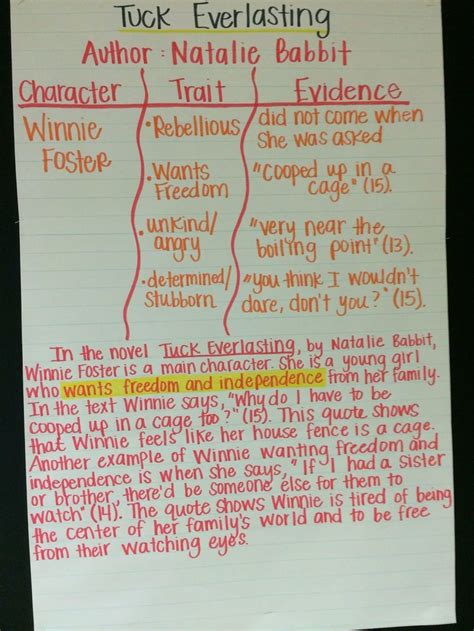 Tuck Everlasting
Author: Natalie Babbit
Character Trait Evidence
Winnie Foster
• Rebellious
did not come when she was asked
• Wants Freedom
"Cooped up in a cage" (15).
• unkind/ angry
"very near the boiling point" (13).
• determined/ stubborn
"you think I wouldn't dare, don't you?" (15).
In the novel Tuck Everlasting, by Natalie Babbit,
Winnie Foster is a main character. She is a young girl
who wants freedom and independence from her family.
In the text Winnie says, "Why do I have to be
cooped up in a cage too?" (15). This quote shows
that Winnie feels like her house fence is a cage.
Another example of Winnie wanting freedom and
independence is when she says, "If I had a sister
or brother, there'd be someone else for them to
watch" (14). The quote shows Winnie is tired of being
the center of her family's world and to be free
from their watching eyes.